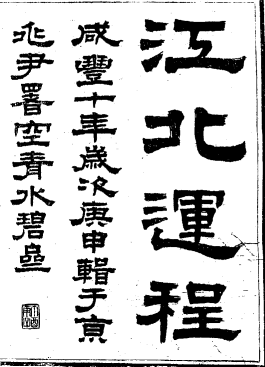 江北運程
咸豐十年歲次庚申輯于京
兆尹署空青水碧齋